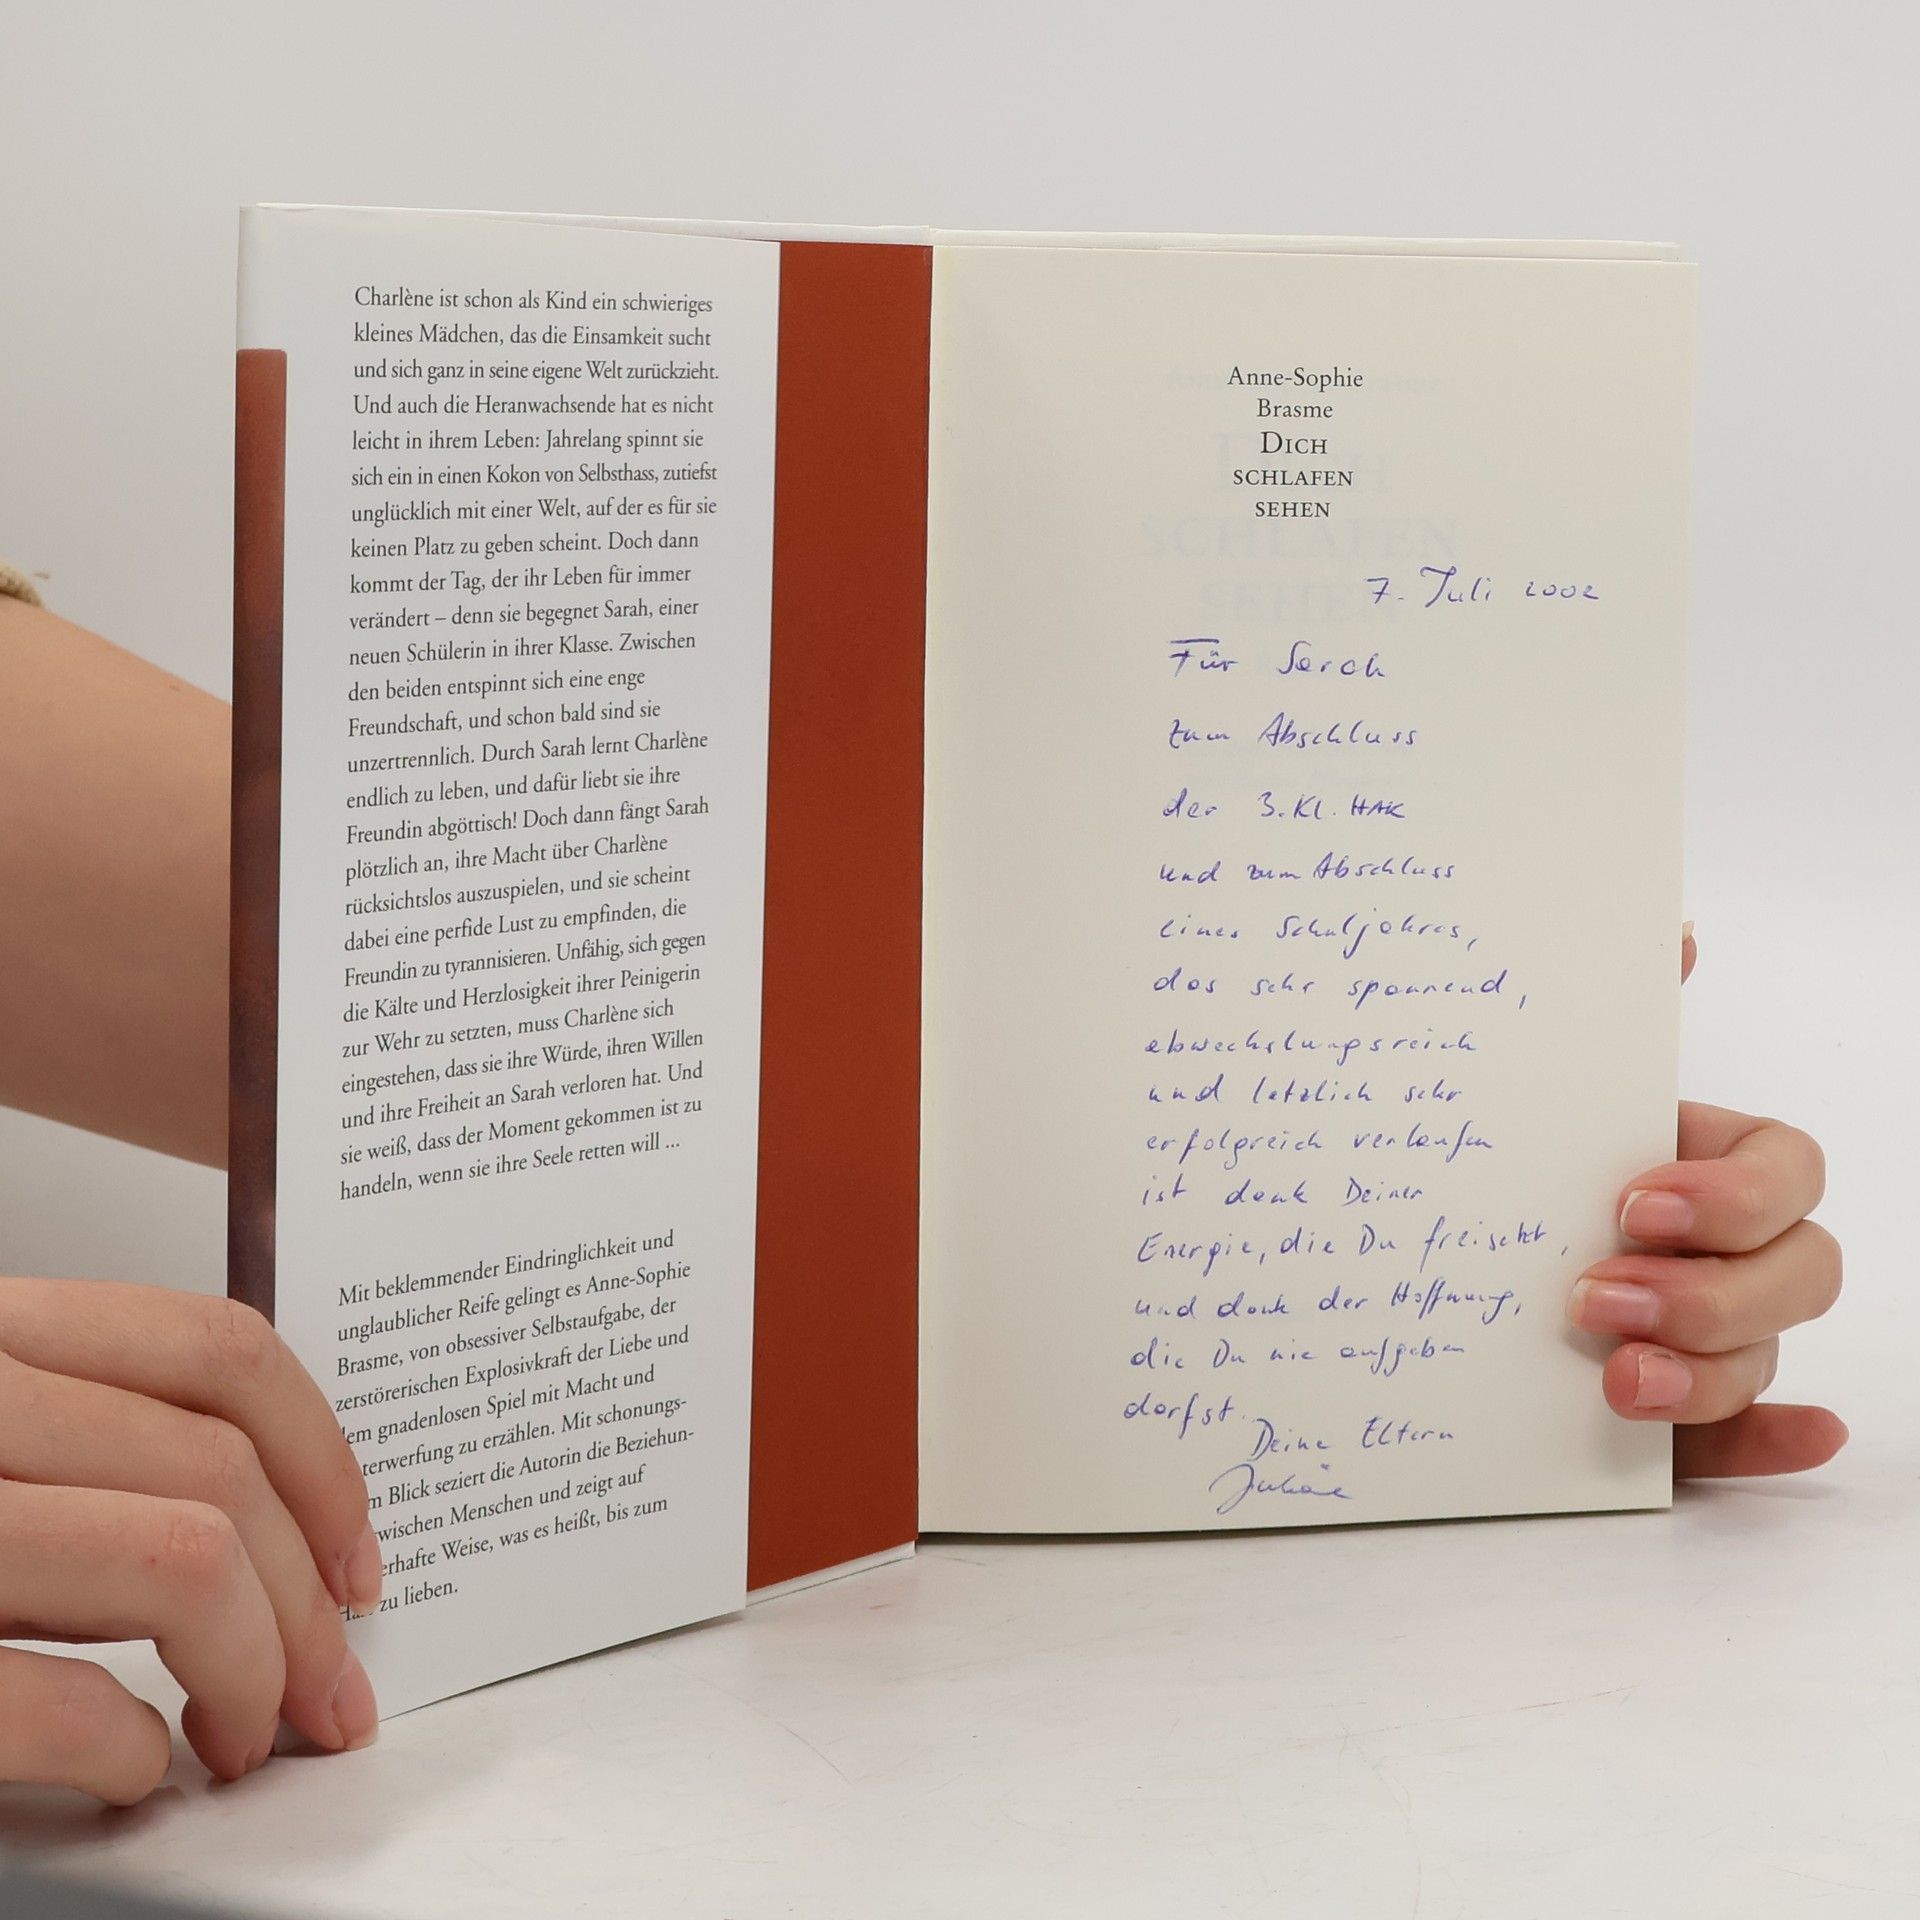 Charlène ist schon als Kind ein schwieriges
kleines Mädchen, das die Einsamkeit sucht
und sich ganz in seine eigene Welt zurückzieht.
Und auch die Heranwachsende hat es nicht
leicht in ihrem Leben: Jahrelang spinnt sie
sich ein in einen Kokon von Selbsthass, zutiefst
unglücklich mit einer Welt, auf der es für sie
keinen Platz zu geben scheint. Doch dann
kommt der Tag, der ihr Leben für immer
verändert – denn sie begegnet Sarah, einer
neuen Schülerin in ihrer Klasse. Zwischen
den beiden entspinnt sich eine enge
Freundschaft, und schon bald sind sie
unzertrennlich. Durch Sarah lernt Charlène
endlich zu leben, und dafür liebt sie ihre
Freundin abgöttisch! Doch dann fängt Sarah
plötzlich an, ihre Macht über Charlène
rücksichtslos auszuspielen, und sie scheint
dabei eine perfide Lust zu empfinden, die
Freundin zu tyrannisieren. Unfähig, sich gegen
die Kälte und Herzlosigkeit ihrer Peinigerin
zur Wehr zu setzten, muss Charlène sich
eingestehen, dass sie ihre Würde, ihren Willen
und ihre Freiheit an Sarah verloren hat. Und
sie weiß, dass der Moment gekommen ist zu
handeln, wenn sie ihre Seele retten will ...
Mit beklemmender Eindringlichkeit und
unglaublicher Reife gelingt es Anne-Sophie
Brasme, von obsessiver Selbstaufgabe, der
zerstörerischen Explosivkraft der Liebe und
dem gnadenlosen Spiel mit Macht und
terwerfung zu erzählen. Mit schonungs-
m Blick seziert die Autorin die Beziehun-
wischen Menschen und zeigt auf
erhafte Weise, was es heißt, bis zum
zu lieben.
Anne-Sophie
Brasme
DICH
SCHLAFEN
SEHEN
7. Juli 2002
Für Sarah
zum Abschluss
der 3. Kl. HAK
und zum Abschluss
eines Schuljahres,
das sehr spannend,
abwechslungsreich
und letzlich sehr
erfolgreich verlaufen
ist dank Deiner
Energie, die Du freisetzt,
und dank der Hoffnung,
die Du nie aufgeben
darfst.
Deine Eltern